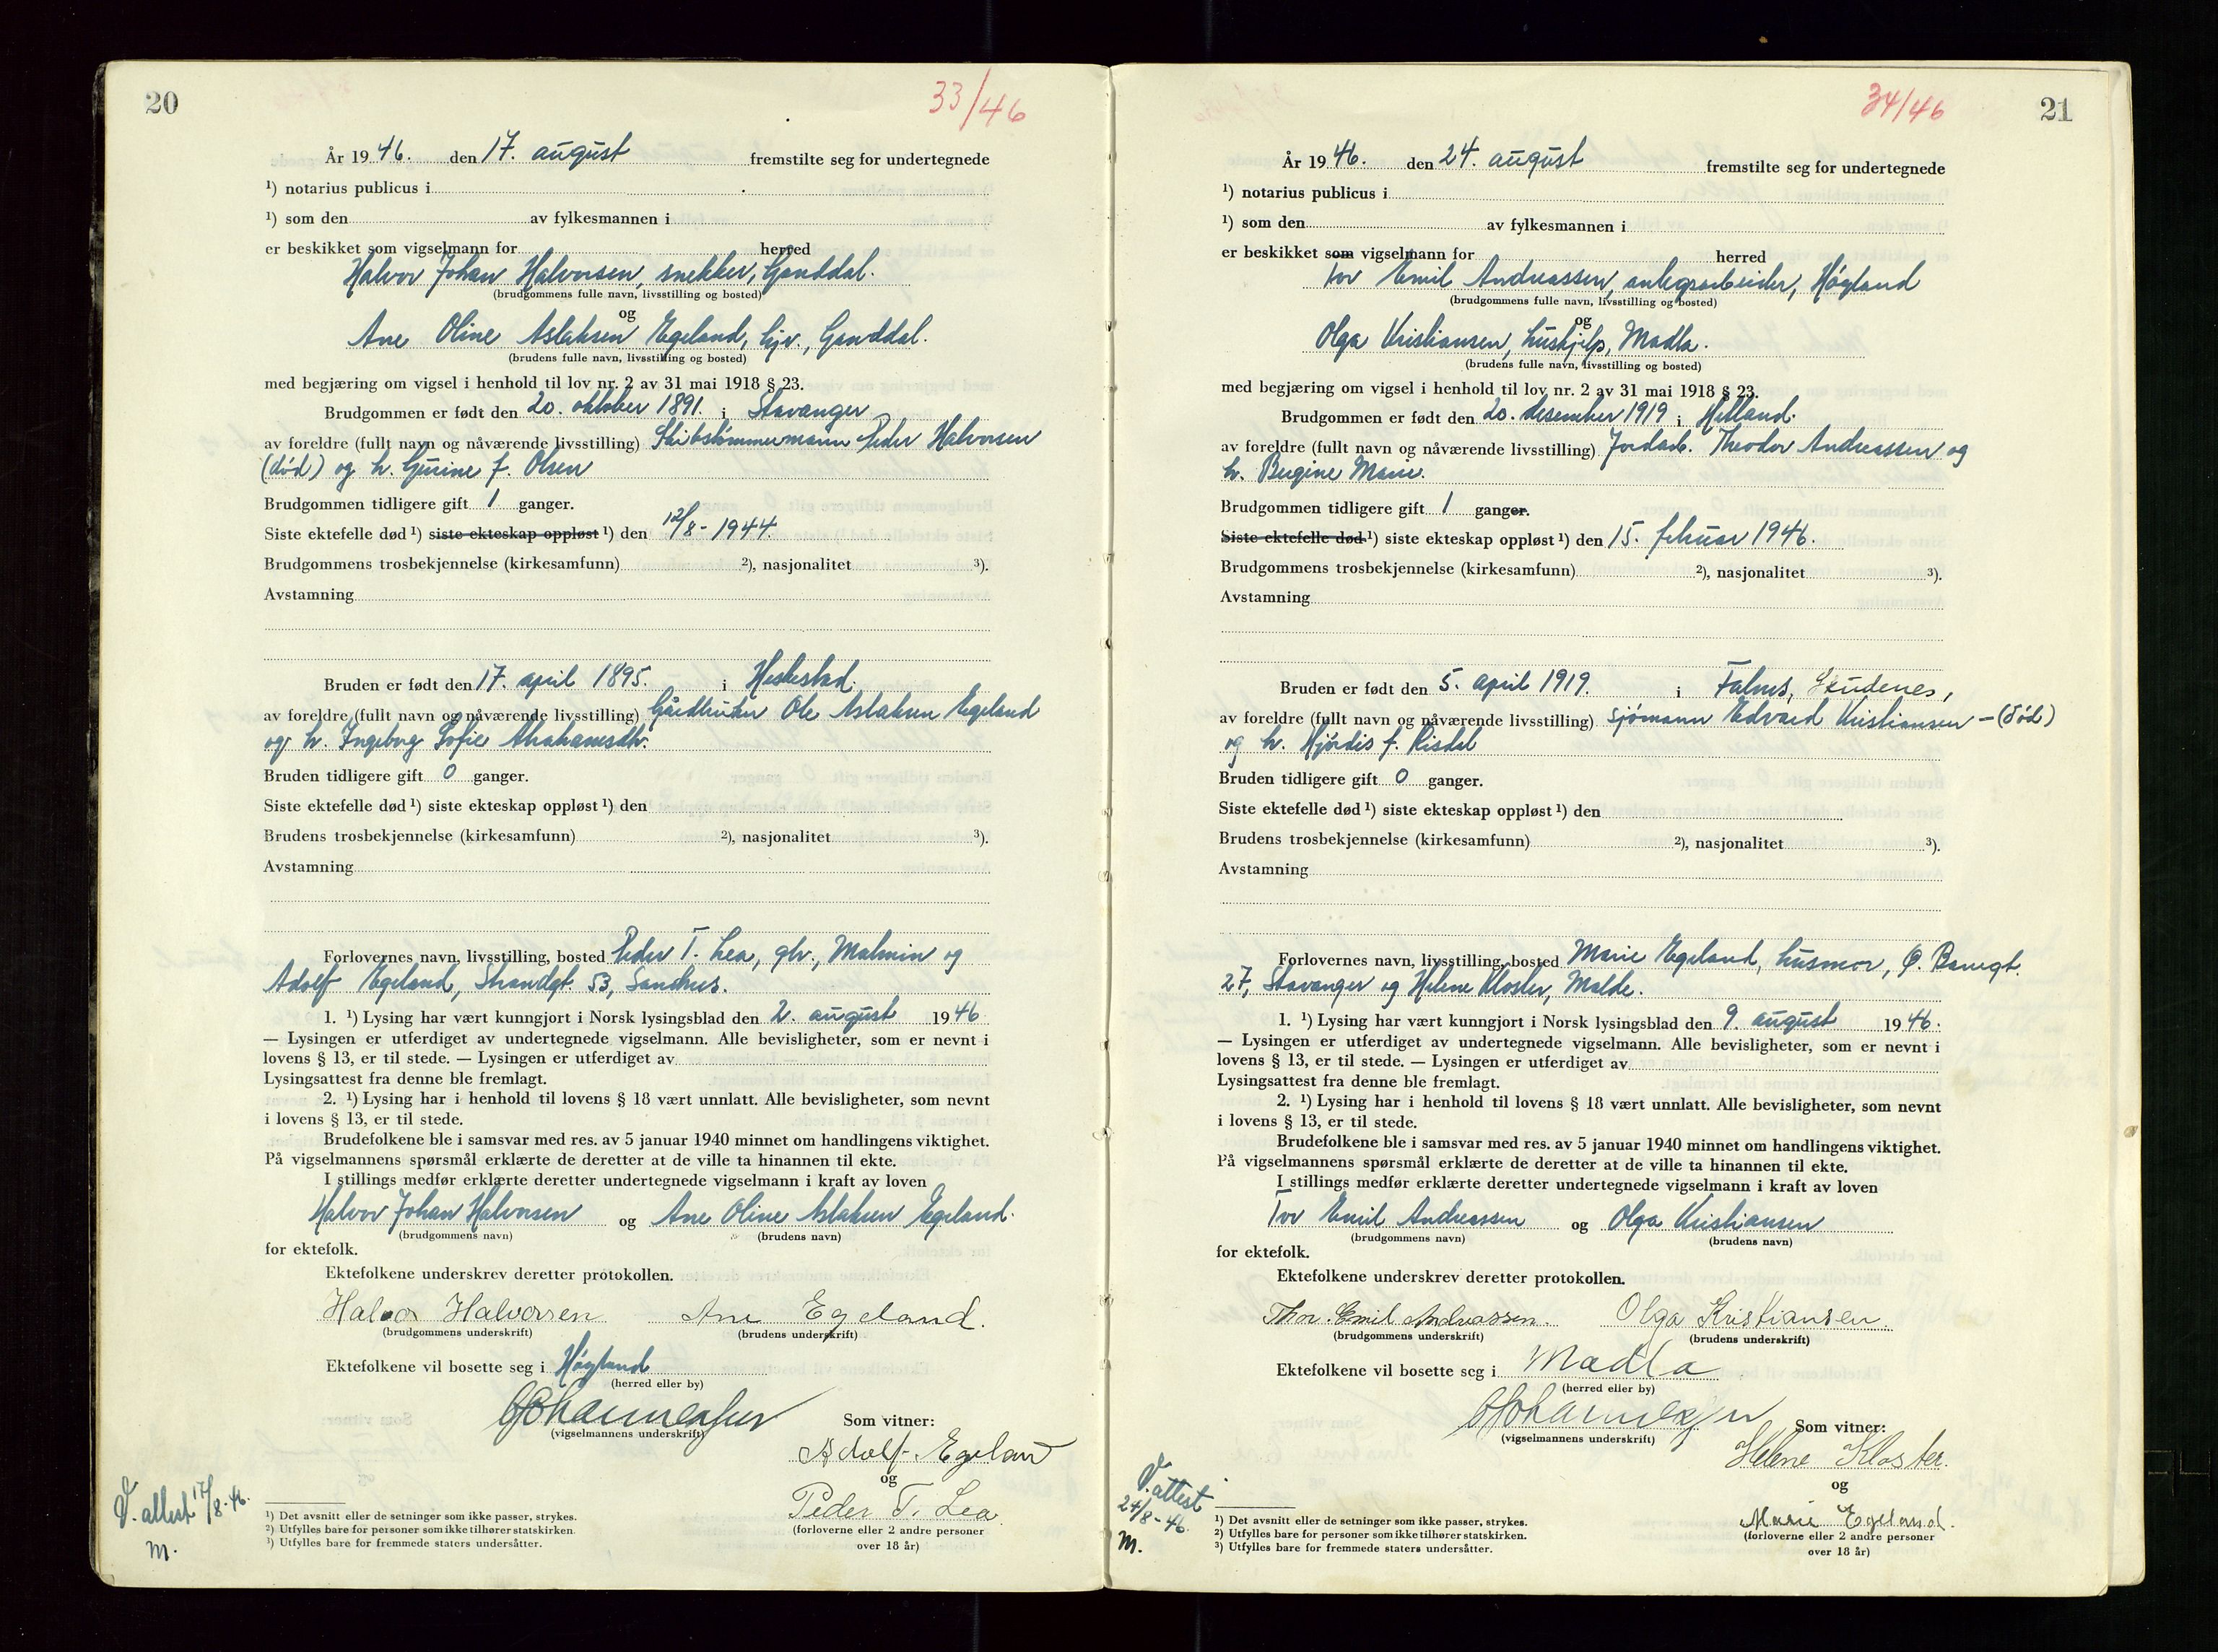 20
33/46
År 1946. den 17. august fremstilte seg for undertegnede
¹) notarius publicus i
¹) som den av fylkesmannen i
er beskikket som vigselmann for herred
Halvor Johan Halvorsen, snekker, Ganddal.
(brudgommens fulle navn, livsstilling og bosted)
og
Ane Oline Aslaksen Egeland, hjv., Ganddal.
(brudens fulle navn, livsstilling og bosted)
med begjæring om vigsel i henhold til lov nr. 2 av 31 mai 1918 § 23.
Brudgommen er født den 20. oktober 1891. i Stavanger
av foreldre (fullt navn og nåværende livsstilling) Skibstømmermann Peder Halvorsen
(død) og h. Gurine f. Olsen
Brudgommen tidligere gift 1 ganger.
Siste ektefelle død ¹) siste ekteskap oppløst ¹) den 12/8 - 1944.
Brudgommens trosbekjennelse (kirkesamfunn) ²), nasjonalitet ³).
Avstamning
Bruden er født den 17. april 1895. i Heskestad.
av foreldre (fullt navn og nåværende livsstilling) Gårdbruker Ole Aslaksen Egeland
og h. Ingeborg Sofie Abrahamsdtr.
Bruden tidligere gift 0 ganger.
Siste ektefelle død ¹) siste ekteskap oppløst ¹) den
Brudens trosbekjennelse (kirkesamfunn) ²), nasjonalitet ³).
Avstamning
Forlovernes navn, livsstilling, bosted Peder T. Lea, gbr., Malmin og
Adolf Egeland, Strandgt 53, Sandnes.
1. ¹) Lysing har vært kunngjort i Norsk lysingsblad den 2. august 1946
— Lysingen er utferdiget av undertegnede vigselmann. Alle bevisligheter, som er nevnt i
lovens § 13, er til stede. — Lysingen er utferdiget av
Lysingsattest fra denne ble fremlagt.
2. ¹) Lysing har i henhold til lovens § 18 vært unnlatt. Alle bevisligheter, som nevnt
i lovens § 13, er til stede.
Brudefolkene ble i samsvar med res. av 5 januar 1940 minnet om handlingens viktighet.
På vigselmannens spørsmål erklærte de deretter at de ville ta hinannen til ekte.
I stillings medfør erklærte deretter undertegnede vigselmann i kraft av loven
Halvor Johan Halvorsen og Ane Oline Aslaksen Egeland.
(brudgommens navn) (brudens navn)
for ektefolk.
Ektefolkene underskrev deretter protokollen.
Halvor Halvorsen Ane Egeland.
(brudgommens underskrift) (brudens underskrift)
Ektefolkene vil bosette seg i Høyland
(herred eller by)
(vigselmannens underskrift)
Som vitner:
Adolf Egeland
og
Peder T. Lea
(forloverne eller 2 andre personer
over 18 år)
V. attest 17/8-46.
M.
¹) Det avsnitt eller de setninger som ikke passer, strykes.
²) Utfylles bare for personer som ikke tilhører statskirken.
³) Utfylles bare for fremmede staters undersåtter.
34/46
21
År 1946. den 24. august fremstilte seg for undertegnede
¹) notarius publicus i
¹) som den av fylkesmannen i
er beskikket som vigselmann for herred
Tor Emil Andreassen, anlegsarbeider, Høyland
(brudgommens fulle navn, livsstilling og bosted)
og
Olga Kristiansen, hushjelp, Madla.
(brudens fulle navn, livsstilling og bosted)
med begjæring om vigsel i henhold til lov nr. 2 av 31 mai 1918 § 23.
Brudgommen er født den 20. desember 1919 i Hetland.
av foreldre (fullt navn og nåværende livsstilling) Jordarb. Theodor Andreassen og
h. Bergine Marie.
Brudgommen tidligere gift 1 ganger.
Siste ektefelle død ¹) siste ekteskap oppløst ¹) den 15. februar 1946.
Brudgommens trosbekjennelse (kirkesamfunn) ²), nasjonalitet ³).
Avstamning
Bruden er født den 5. april 1919. i Falnes, Skudenes,
av foreldre (fullt navn og nåværende livsstilling) sjømann Edvard Kristiansen - (død)
og h. Hjørdis f. Risdal
Bruden tidligere gift 0 ganger.
Siste ektefelle død ¹) siste ekteskap oppløst ¹) den
Brudens trosbekjennelse (kirkesamfunn) ²), nasjonalitet ³).
Avstamning
Forlovernes navn, livsstilling, bosted Marie Egeland, husmor, Ø. Banegt.
27, Stavanger og Helene Kloster, Malde.
1. ¹) Lysing har vært kunngjort i Norsk lysingsblad den 9. august 1946.
— Lysingen er utferdiget av undertegnede vigselmann. Alle bevisligheter, som er nevnt i
lovens § 13, er til stede. — Lysingen er utferdiget av
Lysingsattest fra denne ble fremlagt.
2. ¹) Lysing har i henhold til lovens § 18 vært unnlatt. Alle bevisligheter, som nevnt
i lovens § 13, er til stede.
Brudefolkene ble i samsvar med res. av 5 januar 1940 minnet om handlingens viktighet.
På vigselmannens spørsmål erklærte de deretter at de ville ta hinannen til ekte.
I stillings medfør erklærte deretter undertegnede vigselmann i kraft av loven
Tor Emil Andreassen og Olga Kristiansen
(brudgommens navn) (brudens navn)
for ektefolk.
Ektefolkene underskrev deretter protokollen.
Thor. Emil Andreassen. Olga Kristiansen.
(brudgommens underskrift) (brudens underskrift)
Ektefolkene vil bosette seg i Madla
(herred eller by)
(vigselmannens underskrift)
Som vitner:
Helene Kloster.
og
Marie Egeland.
(forloverne eller 2 andre personer
over 18 år)
V. attest
24/8-46.
M.
¹) Det avsnitt eller de setninger som ikke passer, strykes.
²) Utfylles bare for personer som ikke tilhører statskirken.
³) Utfylles bare for fremmede staters undersåtter.